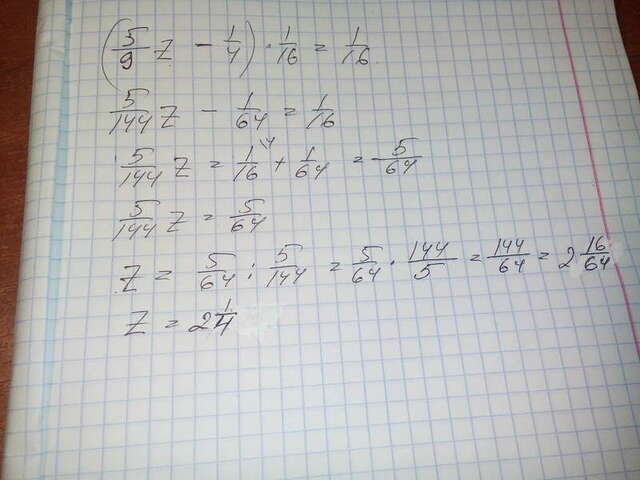 (5/9 z - 1/4) · 1/16 = 1/16
5/144 z - 1/64 = 1/16
5/144 z = 1/16 + 1/64 = 5/64
5/144 z = 5/64
z = 5/64 : 5/144 = 5/64 · 144/5 = 144/64 = 2 16/64
z = 2 1/4